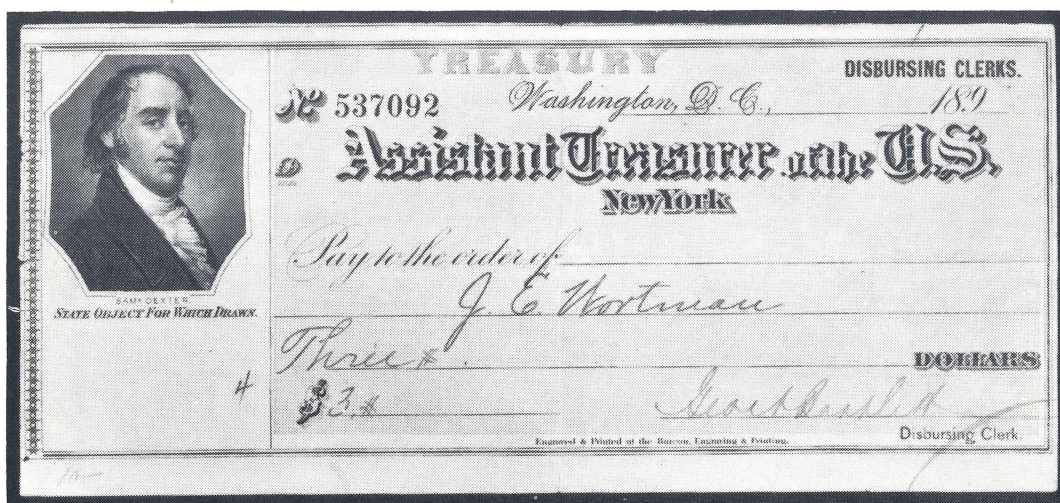 TREASURY
DISBURSING CLERKS.
No 537092 Washington, D. C., 189
Assistant Treasurer of the U.S.
New York
Pay to the order of
J. E. Wortman
Three
DOLLARS
$3.
Disbursing Clerk.
Engraved & Printed at the Bureau, Engraving & Printing.
SAML. DEXTER.
STATE OBJECT FOR WHICH DRAWN.
4